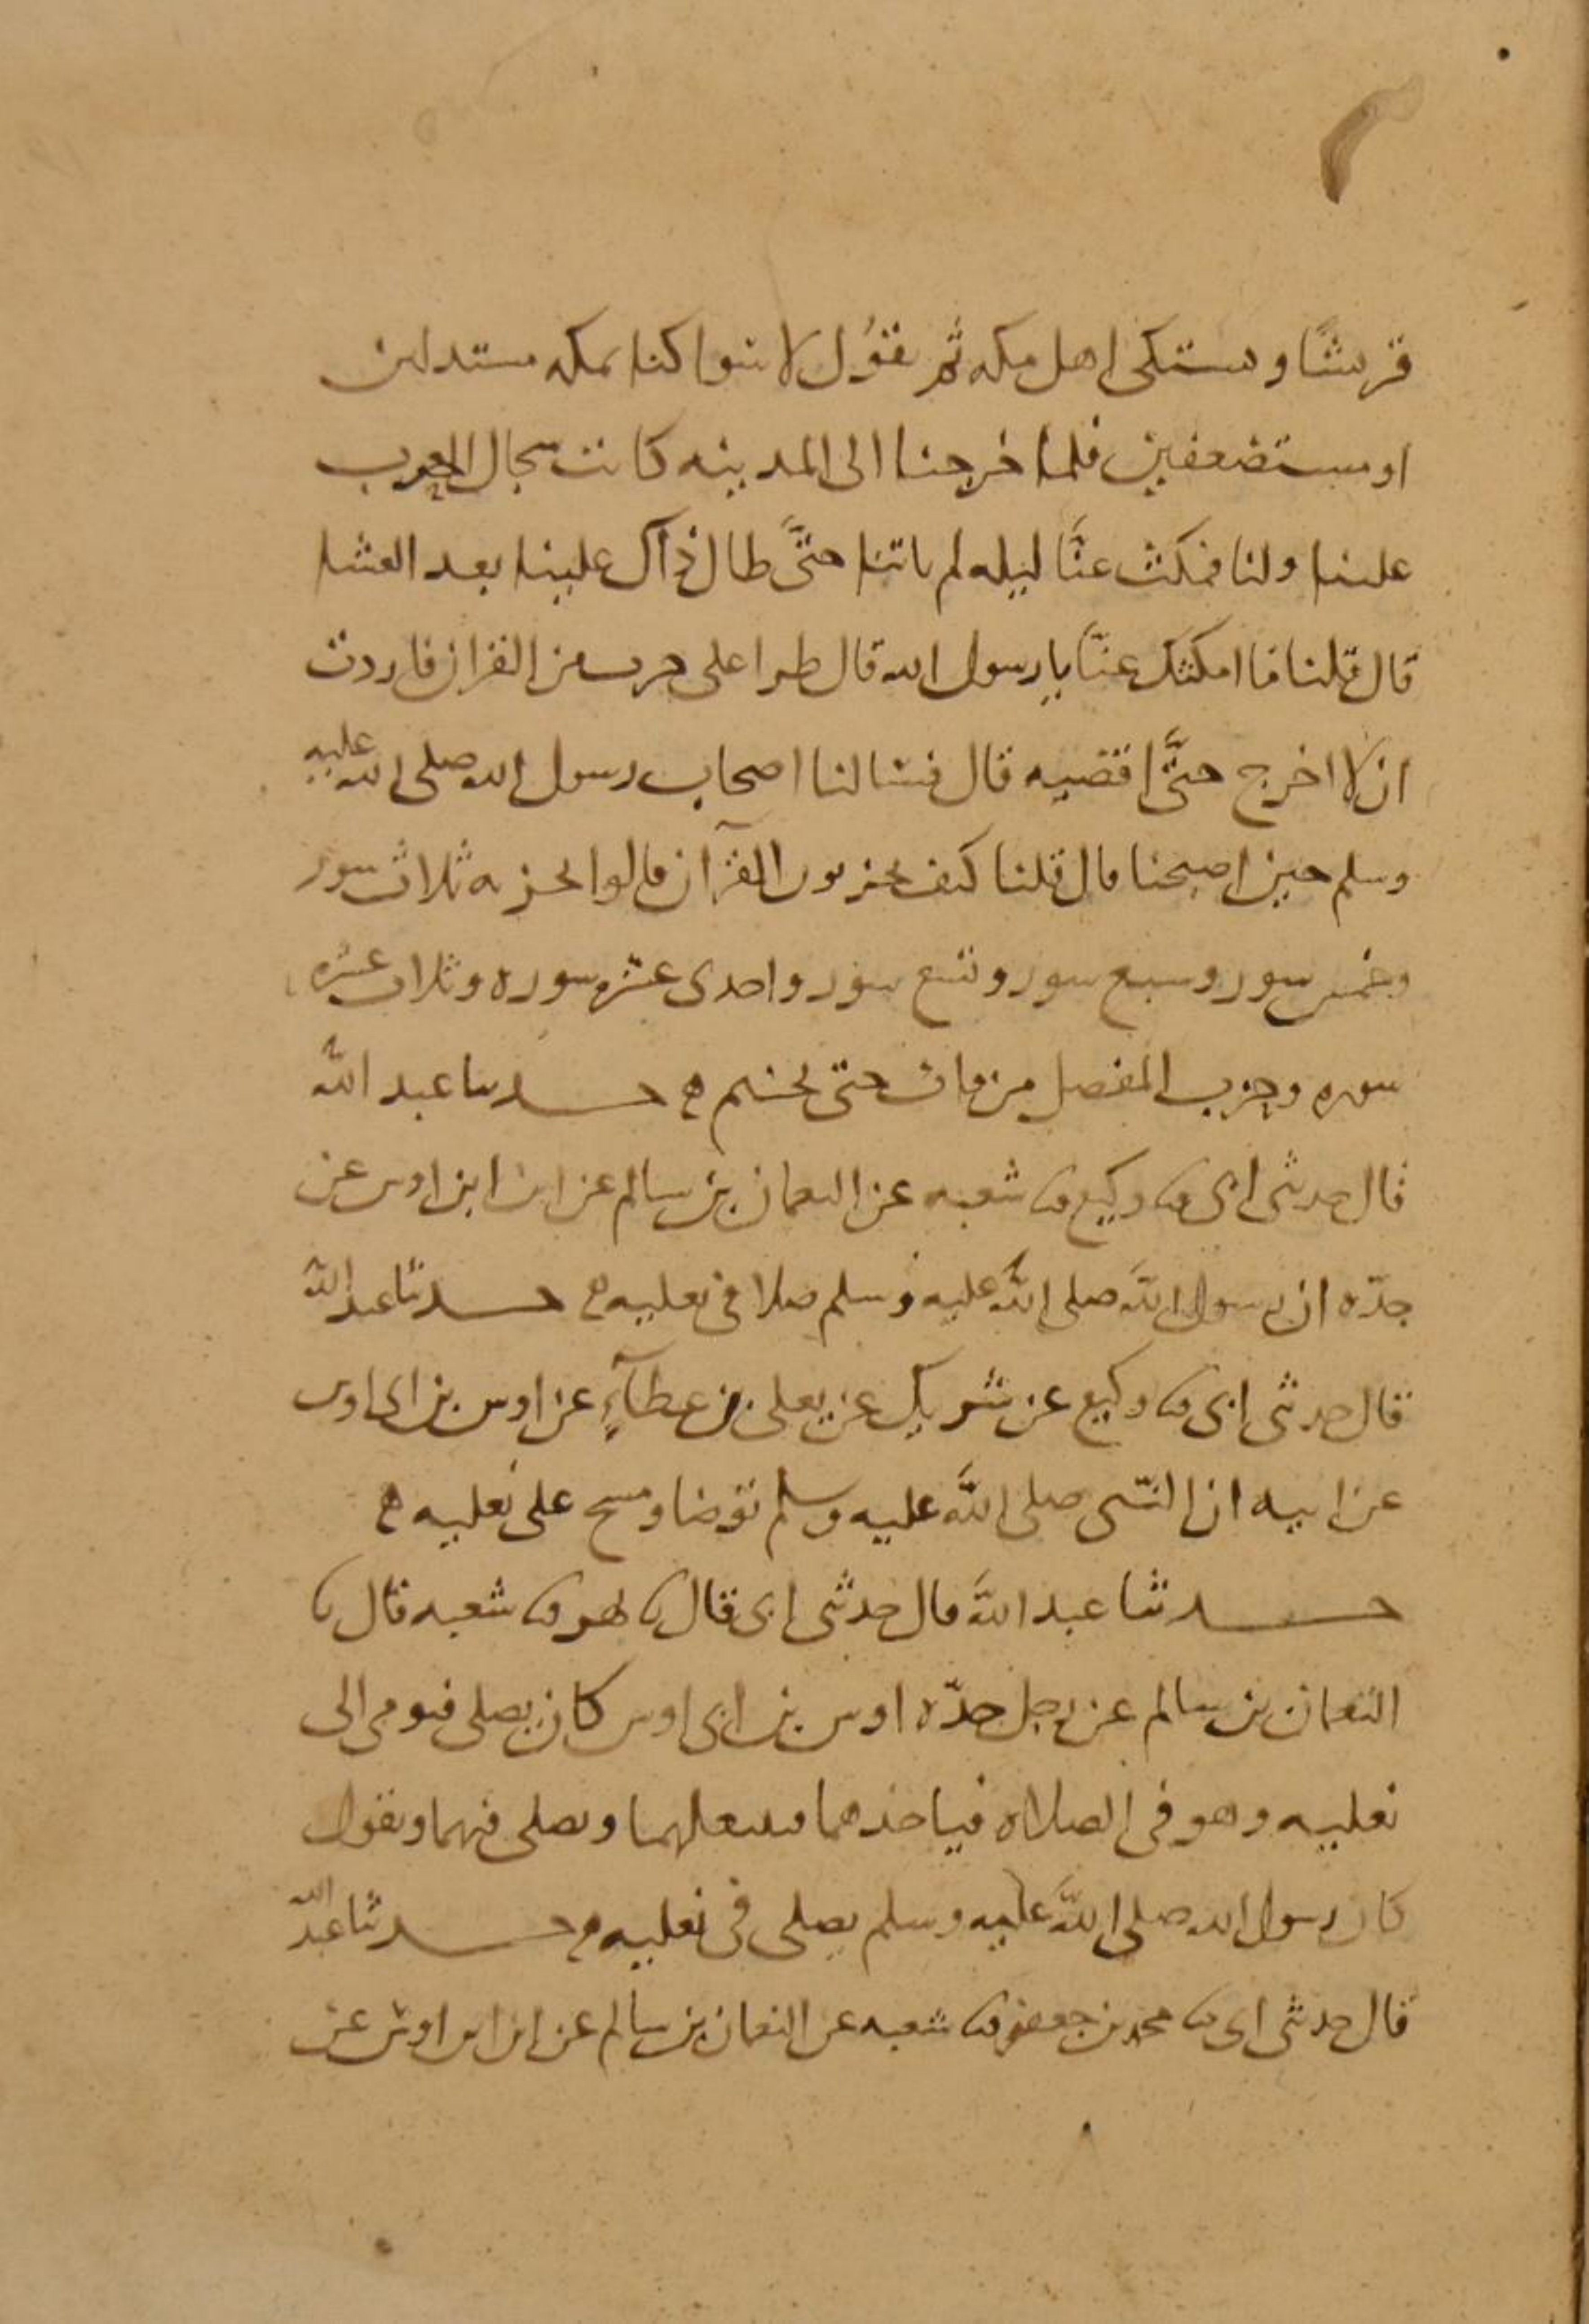 قريشا ويشتكى اهل مكه ثم يقول لا سوا كنا بمكه مستذلين
او مستضعفين فلما خرجنا الى المدينه كانت سجال الحرب
علينا ولنا فمكث عنا ليله لم ياتنا حتى طال ذاك علينا بعد العشا
قال قلنا ما امكثك عنا يا رسول الله قال طرا على حزب من القران فاردت
ان لا اخرج حتى اقضيه قال فسالنا اصحاب رسول الله صلى الله عليه
وسلم حين اصبحنا قال قلنا كيف تحزبون القرآن قالوا نحزبه ثلاث سور
وخمس سور وسبع سور وتسع سور واحدى عشره سوره وثلاث عشره
سوره وحزب المفصل من قاف حتى يختم ه حدثنا عبد الله
قال حدثنى ابى ثنا وكيع ثنا شعبه عن النعمان بن سالم عن ابن ابن اوس عن
جدّه ان رسول الله صلى الله عليه وسلم صلا فى نعليه ه حدثنا عبد الله
قال حدثنى ابى ثنا وكيع عن شريك عن يعلى بن عطآءٍ عن اوس بن ابى اوس
عن ابيه ان النبى صلى الله عليه وسلم توضا ومسح على نعليه ه
حدثنا عبد الله قال حدثنى ابى قال ثنا بهز ثنا شعبه قال ثنا
النعمان بن سالم عن رجل جدّه اوس بن ابى اوس كان يصلى فيومى الى
نعليه وهو فى الصلاه فياخذهما فينتعلهما ويصلى فيهما ويقول
كان رسول الله صلى الله عليه وسلم يصلى فى نعليه ه حدثنا عبد الله
قال حدثنى ابى ثنا محمد بن جعفر ثنا شعبه عن النعمان بن سالم عن ابن ابى اوس عن